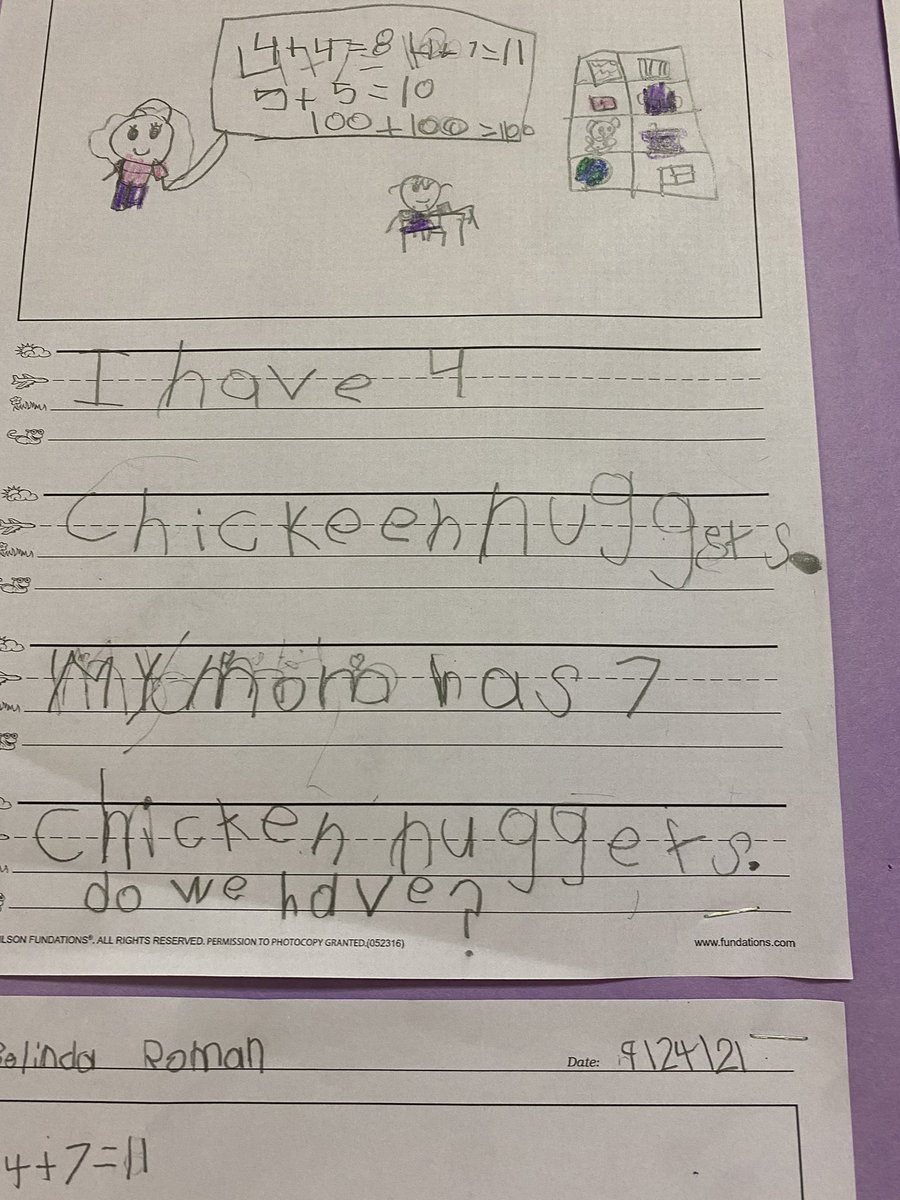 4+4=8 7=11
5+5=10
100+100=100
I have 4
Chickeen nuggets.
My mom has 7
chicken nuggets.
do we have?
ILSON FUNDATIONS®. ALL RIGHTS RESERVED. PERMISSION TO PHOTOCOPY GRANTED.(052316)
www.fundations.com
Belinda Roman
Date: 9\24\21
4+7=11